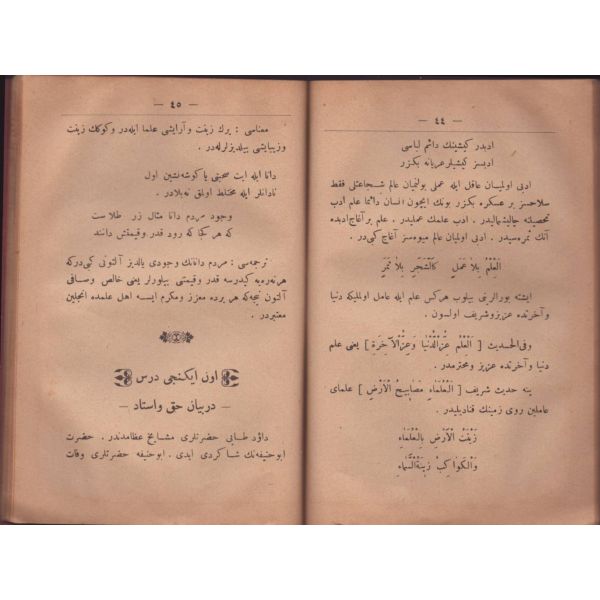 — ٤٤ —
ادبدر كیشینك دائم لباسی
ادبسز كیشیلر عریانه بكزر
ادبی اولمیان عاقل ایله عملی بولنمیان عالم شجاعتلی فقط
سلاحسز بر عسكره بكزر بونك ایچون انسان دائما علم ادب
تحصیلنه چالیشمالیدر . ادب علمك عملیدر . علم بر آغاج ادبده
آنك ثمره سیدر . ادبی اولمیان عالم میوه سز آغاج كبی در .
اَلْعِلْمُ بِلاَ عَمَلٍ كَالشَّجَرِ بِلاَ ثَمَرٍ
ایشته بورالرینی بیلوب هركس علم ایله عامل اولملیكه دنیا
و آخرتده عزیز و شریف اولسون .
وفی الحدیث [ اَلْعِلْمُ عِزُّ الدُّنْیَا وَعِزُّ الْآخِرَةِ ] یعنی علم
دنیا و آخرتده عزیز و محترمدر .
ینه حدیث شریف [ اَلْعُلَمَاءُ مَصَابِیحُ الْاَرْضِ ] علمای
عاملین روی زمینك قنادیلیدر .
زِینَتُ الْاَرْضِ بِالْعُلَمَاءِ
وَالْكَوَاكِبُ زِینَةُ السَّمَاءِ
— ٤٥ —
معناسی : یرك زینت و آرایشی علما ایله در و كوكك زینت
و زیبایشی ییلدیزلرله در .
دانا ایله ایت صحبتی یا كوشه نشین اول
نادانلر ایله مختلط اولمق نه بلادر .
وجود مردم دانا مثال زر طلاست
كه هر كجا كه رود قدر و قیمتش دانند
ترجمه سی : مردم دانانك وجودی یالدیز آلتونی كبی دركه
هر نه یه كیدرسه قدر و قیمتنی بیلورلر یعنی خالص و صافی
آلتون نیجه كه هر یرده معزز و مكرم ایسه اهل علمده انجلین
معتبردر .
اون ایكنجی درس
— دربیان حق و استاد —
داؤد طائی حضرتلری مشایخ عظامدندر . حضرت
ابوحنیفه نك شاكردی ایدی . ابوحنیفه حضرتلری وفات